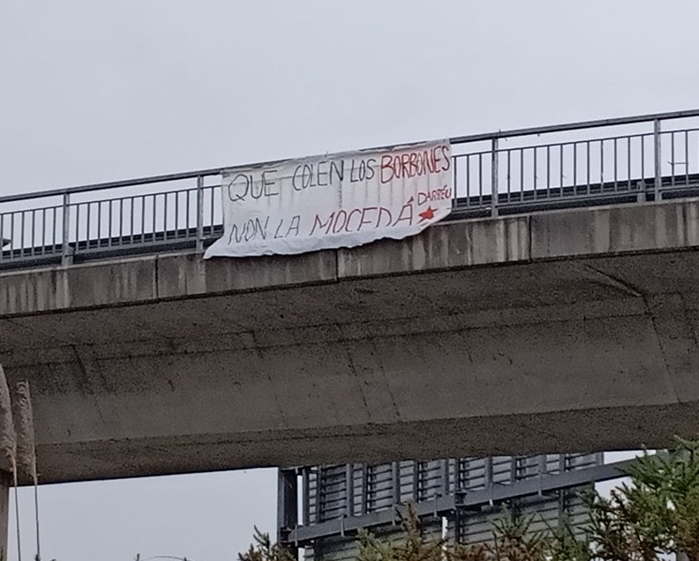 QUE COLEN LOS BORBONES
NON LA MOCEDÁ
DARRÉU